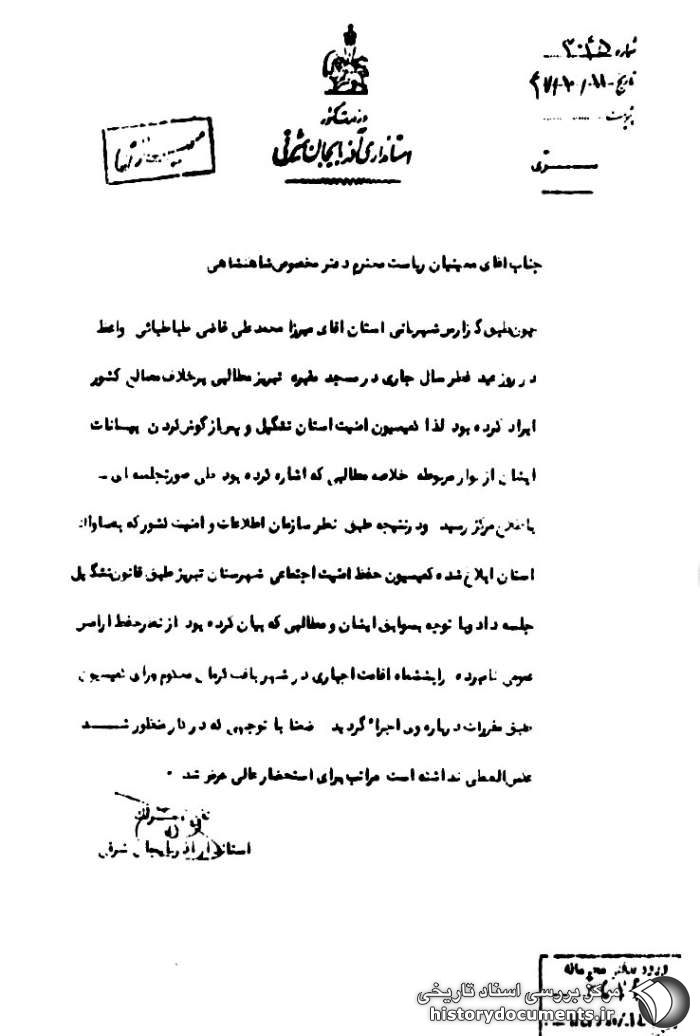 شماره
تاریخ
پیوست
وزارت کشور
استانداری آذربایجان شرقی
سری
محرمانه
جناب آقای معینیان ریاست محترم دفتر مخصوص شاهنشاهی
چون طبق گزارش شهربانی استان آقای میرزا محمدعلی قاضی طباطبائی واعظ
در روز عید فطر سال جاری در مسجد مقبره تبریز مطالبی برخلاف مصالح کشور
ایراد کرده بود لذا کمیسیون امنیت استان تشکیل و پس از گوش کردن بیانات
ایشان از نوار مربوطه خلاصه مطالبی که اشاره کرده بود طی صورتجلسه ای -
باطلاع مرکز رسید و در نتیجه طبق نظر سازمان اطلاعات و امنیت کشور که بساواک
استان ابلاغ شده کمیسیون حفظ امنیت اجتماعی شهرستان تبریز طبق قانون تشکیل
جلسه داد و با توجه بسوابق ایشان و مطالبی که بیان کرده بود از نظر حفظ
عمومی نامبرده را بششماه اقامت اجباری در شهر بافت کرمان محکوم و رای کمیسیون
طبق مقررات درباره وی اجرا گردید ضمنا با توجهی که در کار منظور شد
عکس العملی نداشته است مراتب برای استحضار عالی عرض شد .
استاندار آذربایجان شرقی
ورود بدفتر محرمانه
مرکز بررسی اسناد تاریخی
historydocuments.ir